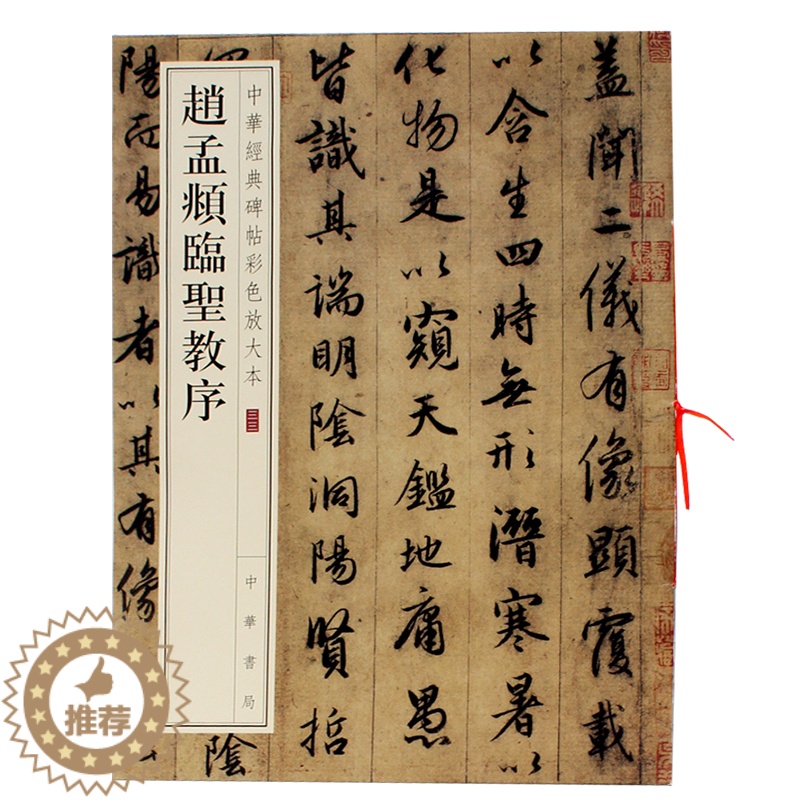 蓋聞二儀有像顯覆載
以含生四時無形潛寒暑以
化物是以窺天鑑地庸愚
皆識其端明陰洞陽賢哲
陰
陽而易識者以其有像
中華經典碑帖彩色放大本 三三
中華書局
趙孟頫臨聖教序
推荐